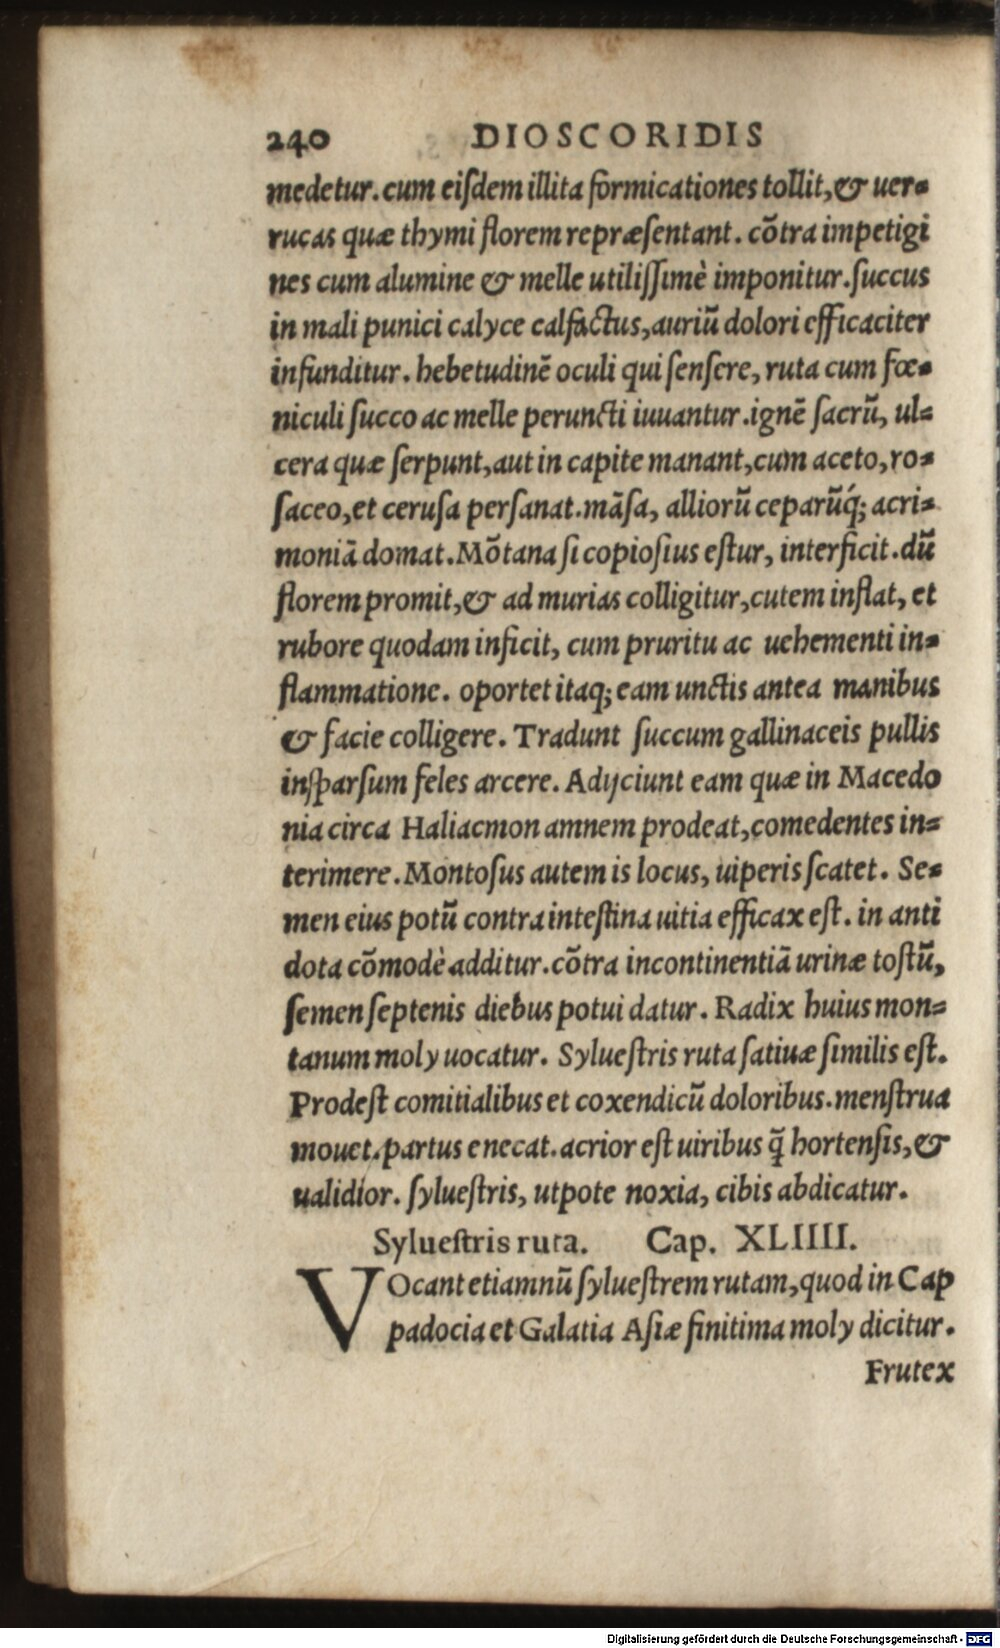 240 DIOSCORIDIS
medetur. cum eiſdem illita formicationes tollit, & uer-
rucas quæ thymi florem repræſentant. cõtra impetigi
nes cum alumine & melle utiliſſimè imponitur. ſuccus
in mali punici calyce calfactus, auriũ dolori efficaciter
infunditur. hebetudinẽ oculi qui ſenſere, ruta cum fœ-
niculi ſucco ac melle peruncti iuuantur. ignẽ ſacrũ, ul-
cera quæ ſerpunt, aut in capite manant, cum aceto, ro-
ſaceo, et ceruſa perſanat. mãſa, alliorũ ceparũq́; acri-
moniã domat. Mõtana ſi copioſius eſtur, interficit. dũ
florem promit, & ad murias colligitur, cutem inflat, et
rubore quodam inficit, cum pruritu ac uehementi in-
flammatione. oportet itaq; eam unctis antea manibus
& facie colligere. Tradunt ſuccum gallinaceis pullis
inſparſum feles arcere. Adijciunt eam quæ in Macedo
nia circa Haliacmon amnem prodeat, comedentes in-
terimere. Montoſus autem is locus, uiperis ſcatet. Se-
men eius potũ contra inteſtina uitia efficax eſt. in anti
dota cõmodè additur. cõtra incontinentiã urinæ toſtũ,
ſemen ſeptenis diebus potui datur. Radix huius mon-
tanum moly uocatur. Sylueſtris ruta ſatiuæ ſimilis eſt.
Prodeſt comitialibus et coxendicũ doloribus. menſtrua
mouet. partus enecat. acrior eſt uiribus q̃ hortenſis, &
ualidior. ſylueſtris, utpote noxia, cibis abdicatur.
Sylueſtris ruta. Cap. XLIIII.
VOcant etiamnũ ſylueſtrem rutam, quod in Cap
padocia et Galatia Aſiæ finitima moly dicitur.
Frutex
Digitalisierung gefördert durch die Deutsche Forschungsgemeinschaft - DFG